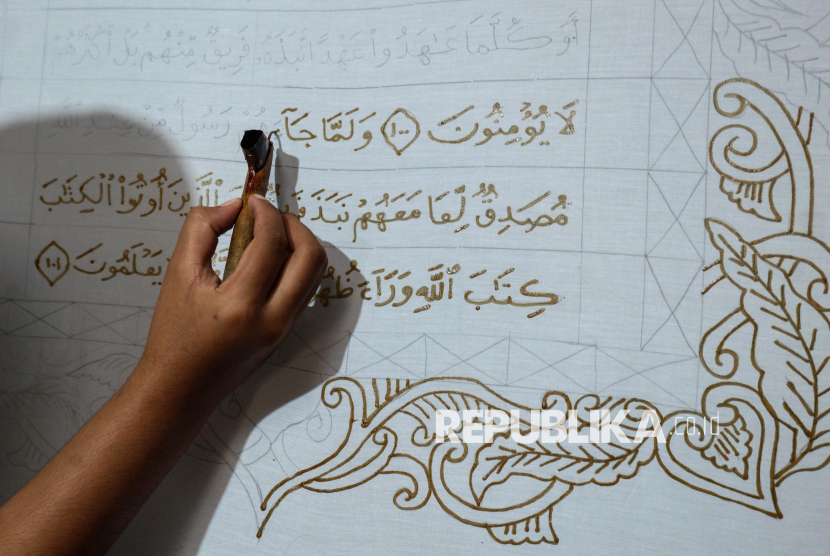 أَوَكُلَّمَا عَٰهَدُوا۟ عَهْدًا نَّبَذَهُۥ فَرِيقٌ مِّنْهُم بَلْ أَكْثَرُهُمْ
لَا يُؤْمِنُونَ ١٠٠ وَلَمَّا جَآءَهُمْ رَسُولٌ مِّنْ عِندِ ٱللَّهِ
مُصَدِّقٌ لِّمَا مَعَهُمْ نَبَذَ ٱلَّذِينَ أُوتُوا۟ ٱلْكِتَٰبَ
كِتَٰبَ ٱللَّهِ وَرَآءَ يَعْلَمُونَ ١٠١
REPUBLIKA.co.id